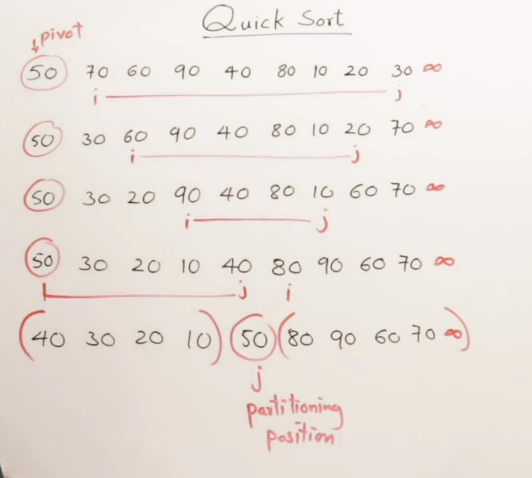 Quick Sort
pivot
50 70 60 90 40 80 10 20 30 ∞
i j
50 30 60 90 40 80 10 20 70 ∞
i j
50 30 20 90 40 80 10 60 70 ∞
i j
50 30 20 10 40 80 90 60 70 ∞
j i
(40 30 20 10) 50 (80 90 60 70 ∞)
j
partitioning
position